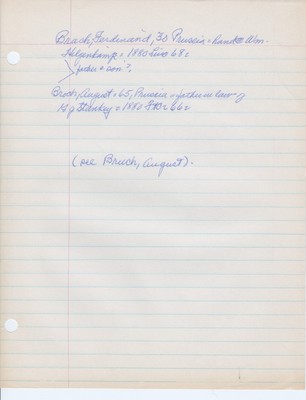 Brach, Ferdinand, 30 Prussia = 
Helgenkamp = 1880 Liv= 682
father = son?
Broch, August = 65, Prussia = father in law of
H g Starkey = 1883 P.10= 662
(see Bruch, August).